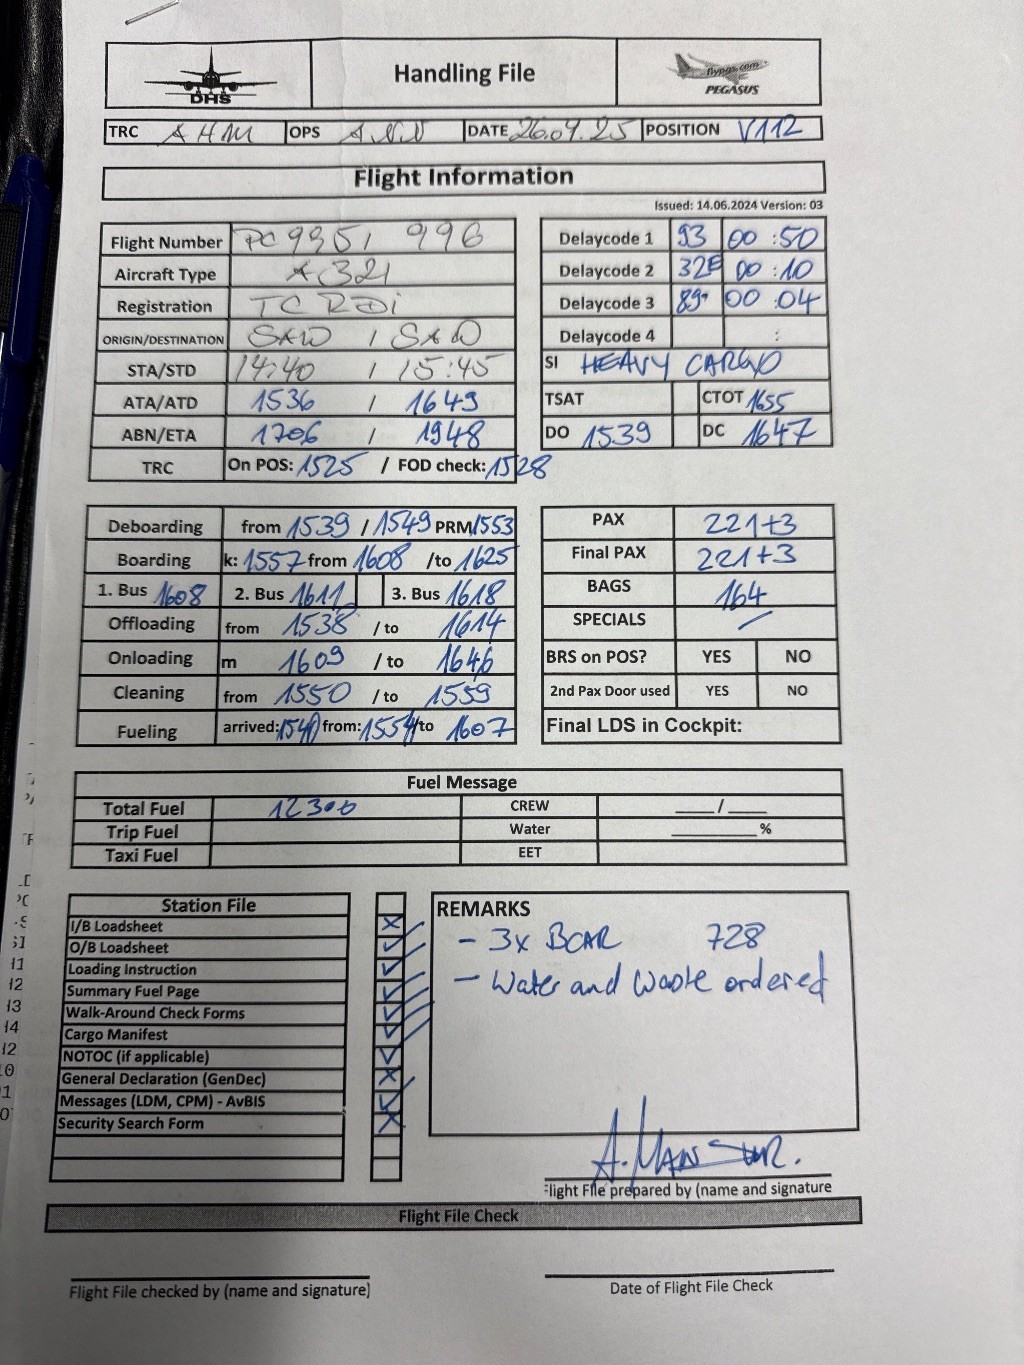 DHS
Handling File
flypgs.com
PEGASUS
TRC AHM OPS ANN DATE 26.04.25 POSITION V112
Flight Information
Issued: 14.06.2024 Version: 03
Flight Number PC 995 / 996
Aircraft Type A321
Registration TC RDI
ORIGIN/DESTINATION SAW / SAW
STA/STD 14:40 / 15:45
ATA/ATD 1536 / 1649
ABN/ETA 1706 / 1948
TRC On POS: 1525 / FOD check: 1528
Delaycode 1 93 00:50
Delaycode 2 32E 00:10
Delaycode 3 89 00:04
Delaycode 4 :
SI HEAVY CARGO
TSAT CTOT 1655
DO 1539 DC 1647
Deboarding from 1539 / 1549 PRM 1553
Boarding k: 1557 from 1608 /to 1625
1. Bus 1608 2. Bus 1611 3. Bus 1618
Offloading from 1538 / to 1614
Onloading m 1609 / to 1646
Cleaning from 1550 / to 1559
Fueling arrived: 1540 from: 1554 /to 1607
PAX 221+3
Final PAX 221+3
BAGS 164
SPECIALS
BRS on POS? YES NO
2nd Pax Door used YES NO
Final LDS in Cockpit:
Fuel Message
Total Fuel 12300 CREW /
Trip Fuel Water %
Taxi Fuel EET
Station File
I/B Loadsheet
O/B Loadsheet
Loading Instruction
Summary Fuel Page
Walk-Around Check Forms
Cargo Manifest
NOTOC (if applicable)
General Declaration (GenDec)
Messages (LDM, CPM) - AvBIS
Security Search Form
REMARKS
- 3x BCAR 728
- Water and Waste ordered
A. MANSUR.
Flight File prepared by (name and signature
Flight File Check
Flight File checked by (name and signature)
Date of Flight File Check